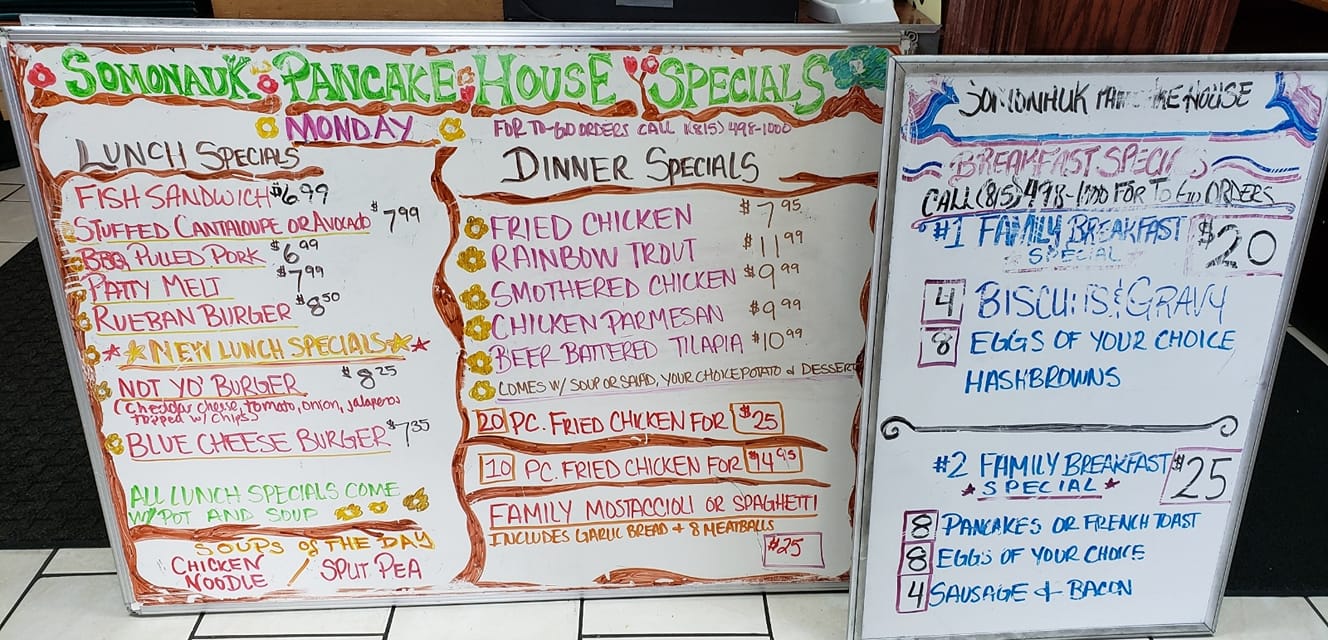 SOMONAUK PANCAKE HOUSE SPECIALS
MONDAY
FOR TO-GO ORDERS CALL 1(815) 498-1000
LUNCH SPECIALS
FISH SANDWICH $6.99
STUFFED CANTALOUPE OR AVOCADO $7.99
BBQ PULLED PORK $6.99
PATTY MELT $7.99
RUEBAN BURGER $8.50
NEW LUNCH SPECIALS
NOT YO' BURGER $8.25
(Cheddar cheese, tomato, onion, jalapenos
topped w/ chips)
BLUE CHEESE BURGER $7.35
ALL LUNCH SPECIALS COME
W/ POT AND SOUP
SOUPS of THE DAY
CHICKEN NOODLE / SPLIT PEA
DINNER SPECIALS
FRIED CHICKEN $7.95
RAINBOW TROUT $11.99
SMOTHERED CHICKEN $9.99
CHICKEN PARMESAN $9.99
BEER BATTERED TILAPIA $10.99
COMES W/ SOUP OR SALAD, YOUR CHOICE POTATO & DESSERT
20 PC. FRIED CHICKEN FOR $25
10 PC. FRIED CHICKEN FOR $14.95
FAMILY MOSTACCIOLI OR SPAGHETTI
INCLUDES GARLIC BREAD + 8 MEATBALLS
$25
SOMONAUK PANCAKE HOUSE
BREAKFAST SPECIALS
CALL (815) 498-1000 FOR TO GO ORDERS
#1 FAMILY BREAKFAST $20
SPECIAL
4 BISCUITS & GRAVY
8 EGGS OF YOUR CHOICE
HASHBROWNS
#2 FAMILY BREAKFAST $25
SPECIAL
8 PANCAKES OR FRENCH TOAST
8 EGGS OF YOUR CHOICE
4 SAUSAGE + BACON